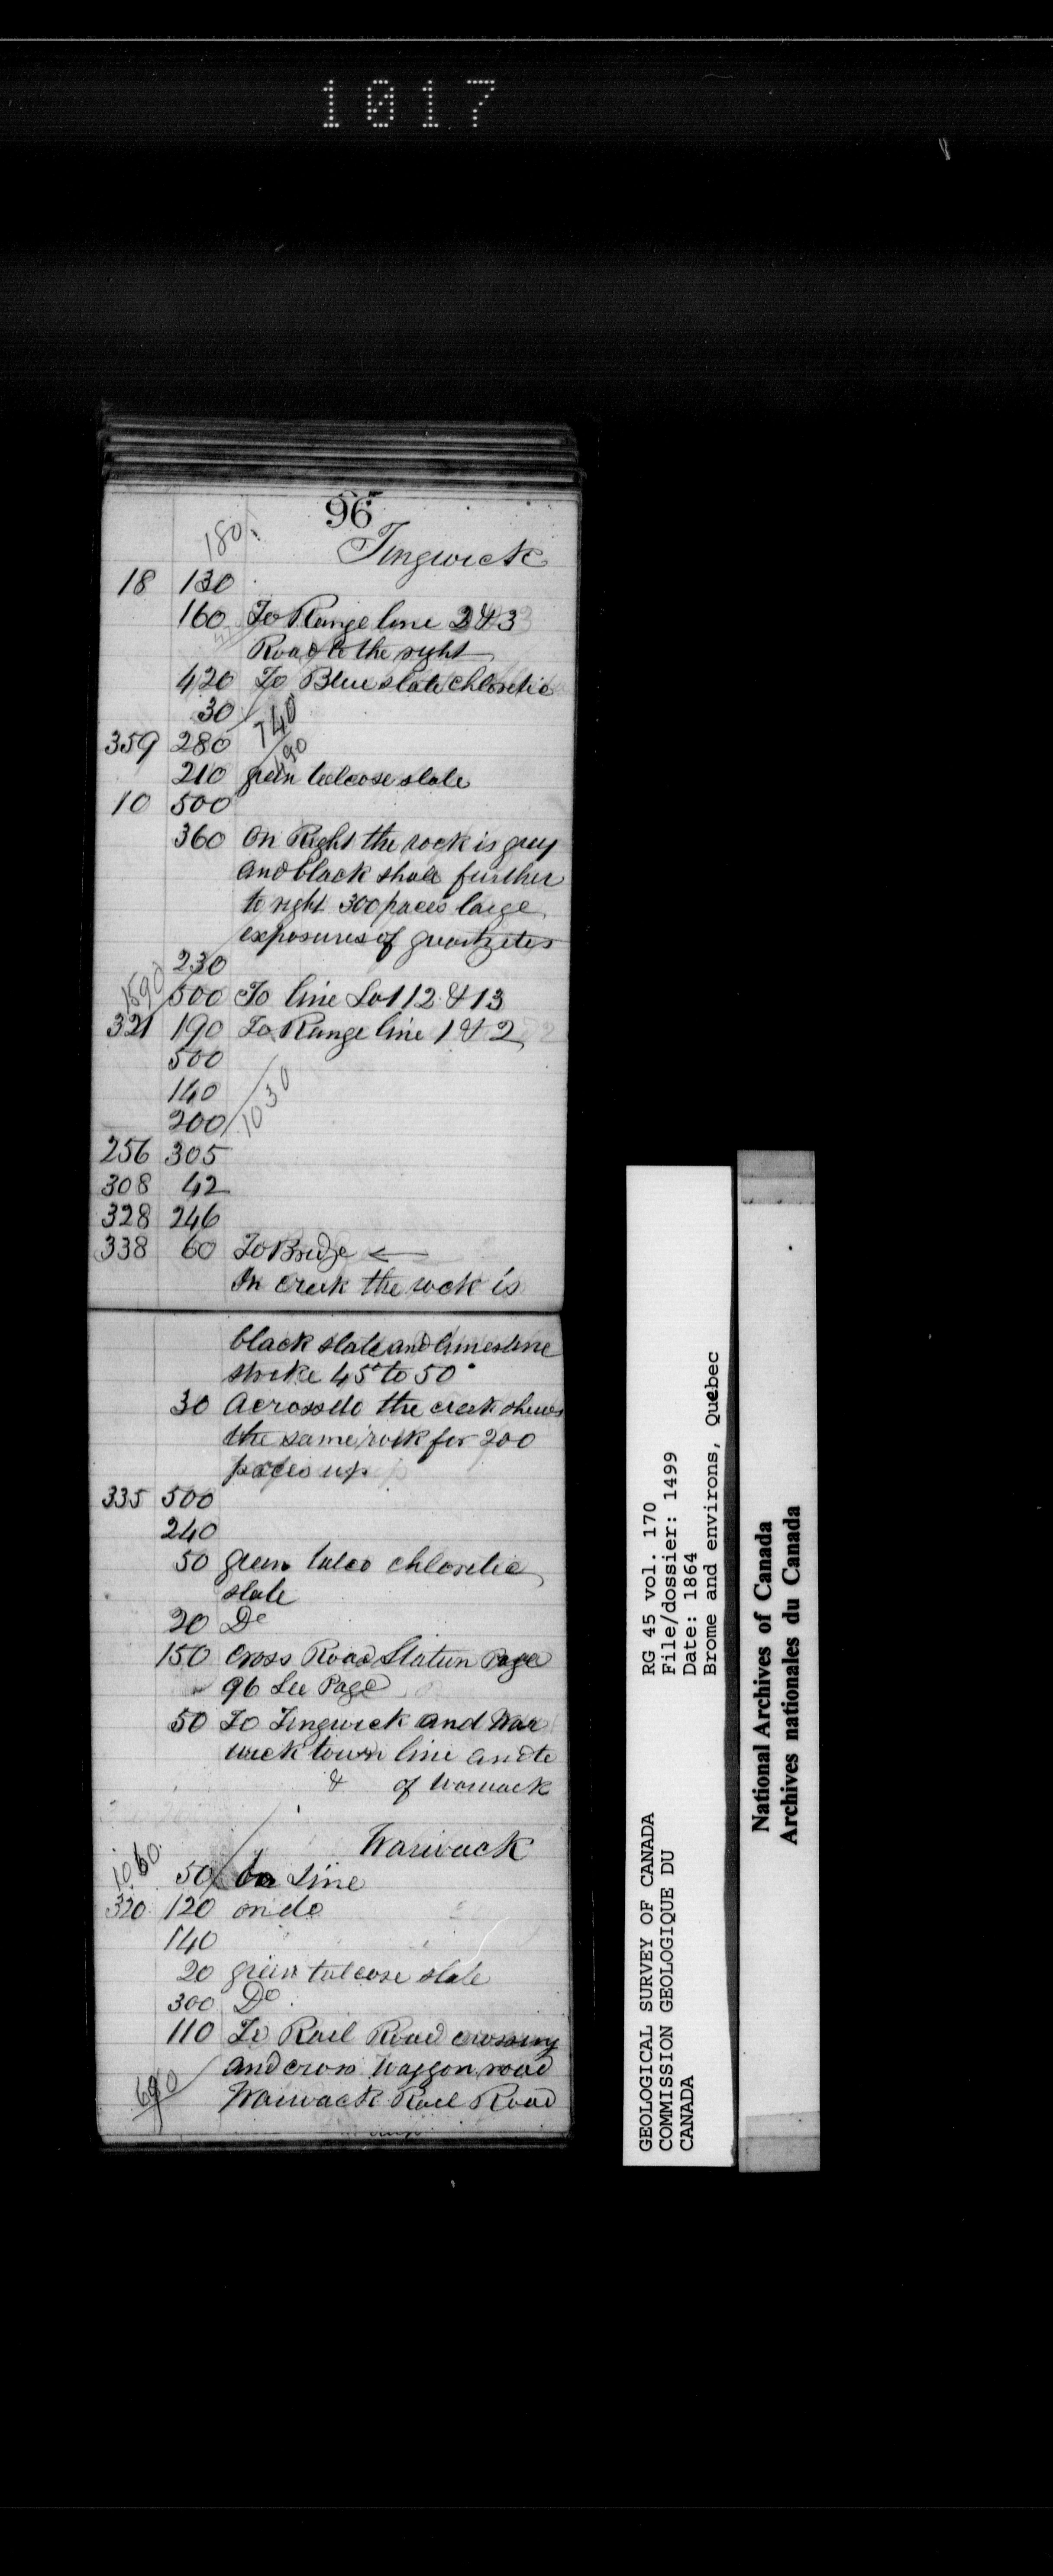 1017
96
180
Tingwick
18 130
160 To Range line 2 & 3
Road to the right
420 To Blue slate chloretic
30
740
359 280
190
210 green talcose slate
10 500
360 On Right the rock is grey
and black shale further
to right 300 paces large
exposures of quartzites
230
1590
500 To line Lot 12 & 13
321 190 To Range line 1 & 2
500
140
1030
200
256 305
308 42
328 246
338 60 To Bridge ←
In creek the rock is
black slate and limestone
strike 45° to 50°
30 Across do the creek shews
the same rock for 200
paces up
335 500
240
50 green talco chloretic
slate
20 Do
150 Cross Road Station Page
96 See Page
50 To Tingwick and War
wick town line and to
& of Warwick
Warwick
1060
50 Line
320 120 on do
140
20 green talcose slate
300 Do
110 To Rail Road crossing
and cross Waggon road
690
Warwick Rail Road
GEOLOGICAL SURVEY OF CANADA
COMMISSION GEOLOGIQUE DU
CANADA
RG 45 vol. 170
File/dossier: 1499
Date: 1864
Brome and environs, Quebec
National Archives of Canada
Archives nationales du Canada